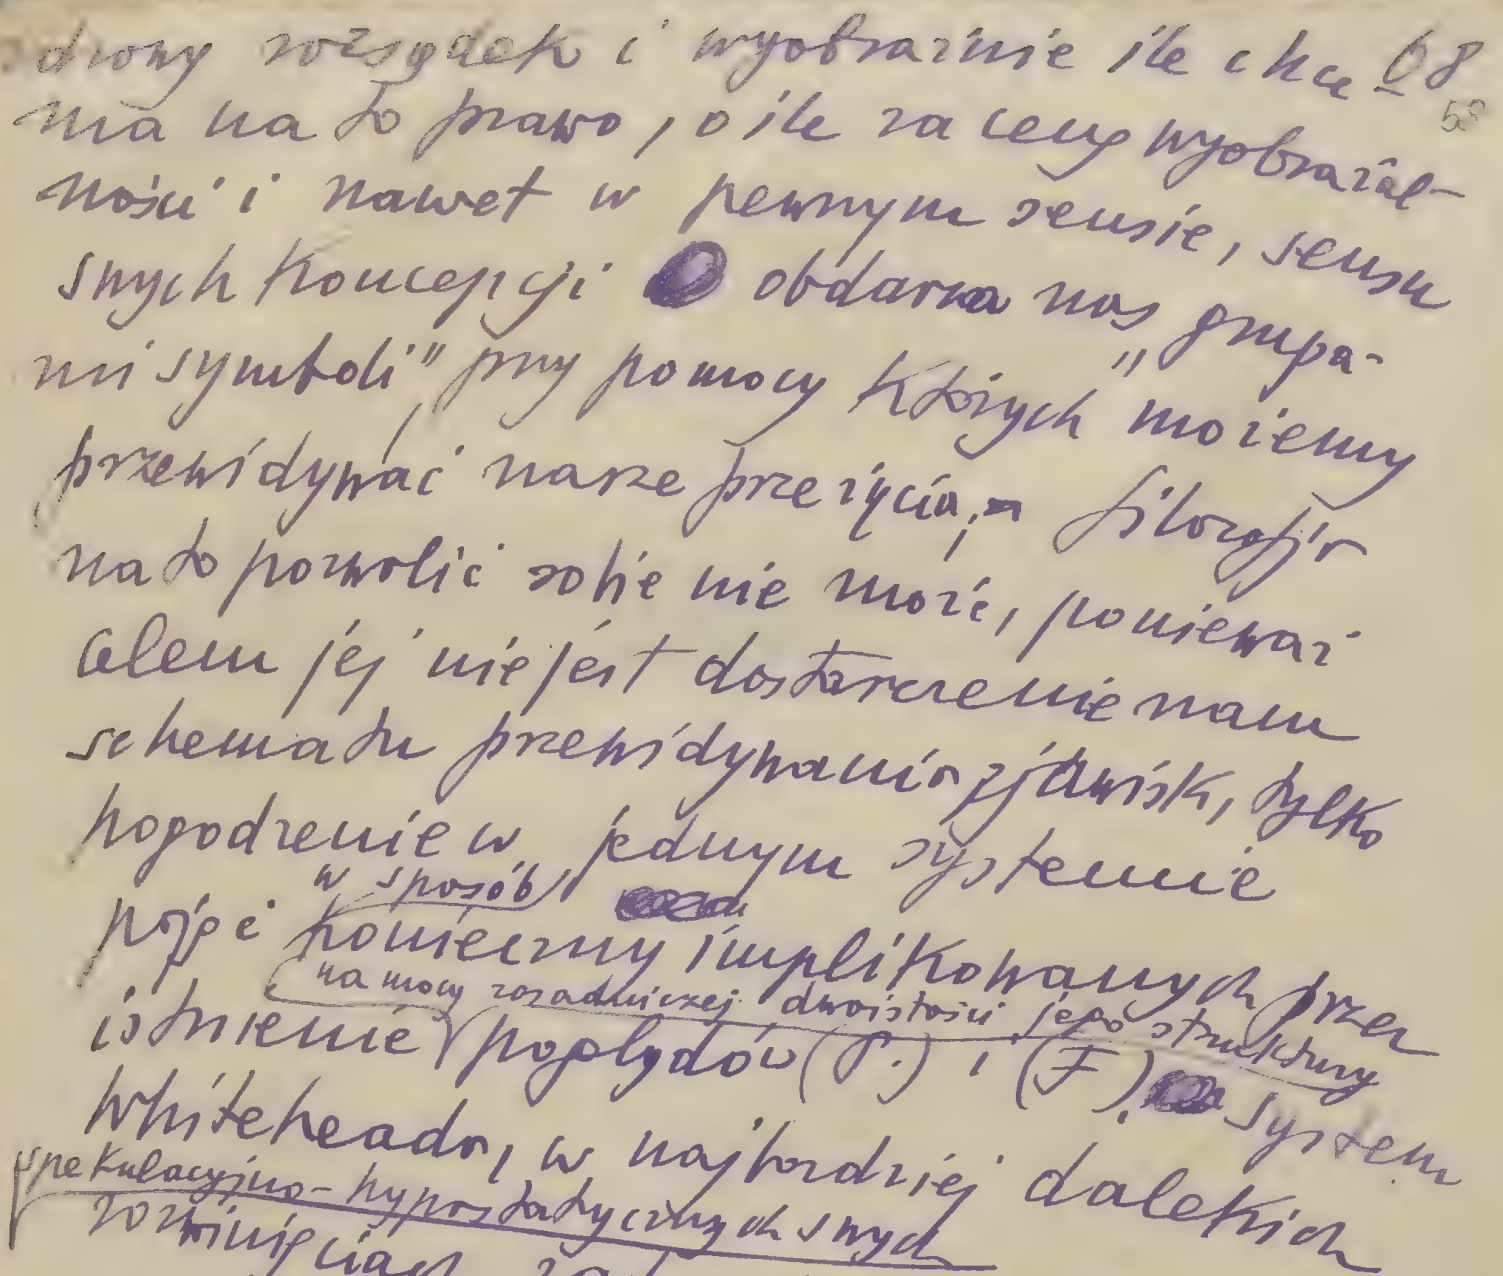 zdrowy rozsądek i wyobraźnie ile chce 68
58
ma na to prawo, o ile za cenę wyobrażal-
ności i nawet w pewnym sensie, sensu
swych koncepcji obdarza nas „grupa-
mi symboli", przy pomocy których możemy
przewidywać nasze przeżycia, filozofja
na to pozwolić sobie nie może, ponieważ
celem jej nie jest dostarczenie nam
schematu przewidywania zjawisk, tylko
pogodzenie w jednym systemie
w sposób
pojęć konieczny implikowanych przez
na mocy zasadniczej dwoistości jego struktury
istnienie poglądów (P.) i (F). System
Whiteheada, w najbardziej dalekich
spekulacyjno-hypostatycznych swych
rozwinięciach